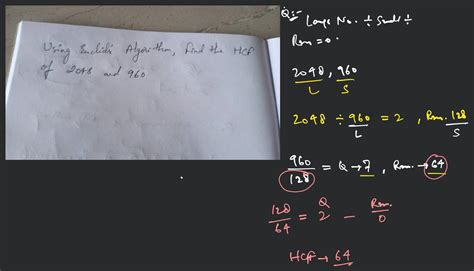 Using Euclid's Algorithm, find the HCF
of 2048 and 960
Q5- Large No. ÷ Small ÷
Rem = 0.
2048, 960
L S
2048 ÷ 960 = 2, Rem. 128
L S
960/128 = Q → 7, Rem. → 64
Q Rem.
128/64 = 2 - 0
HCF → 64